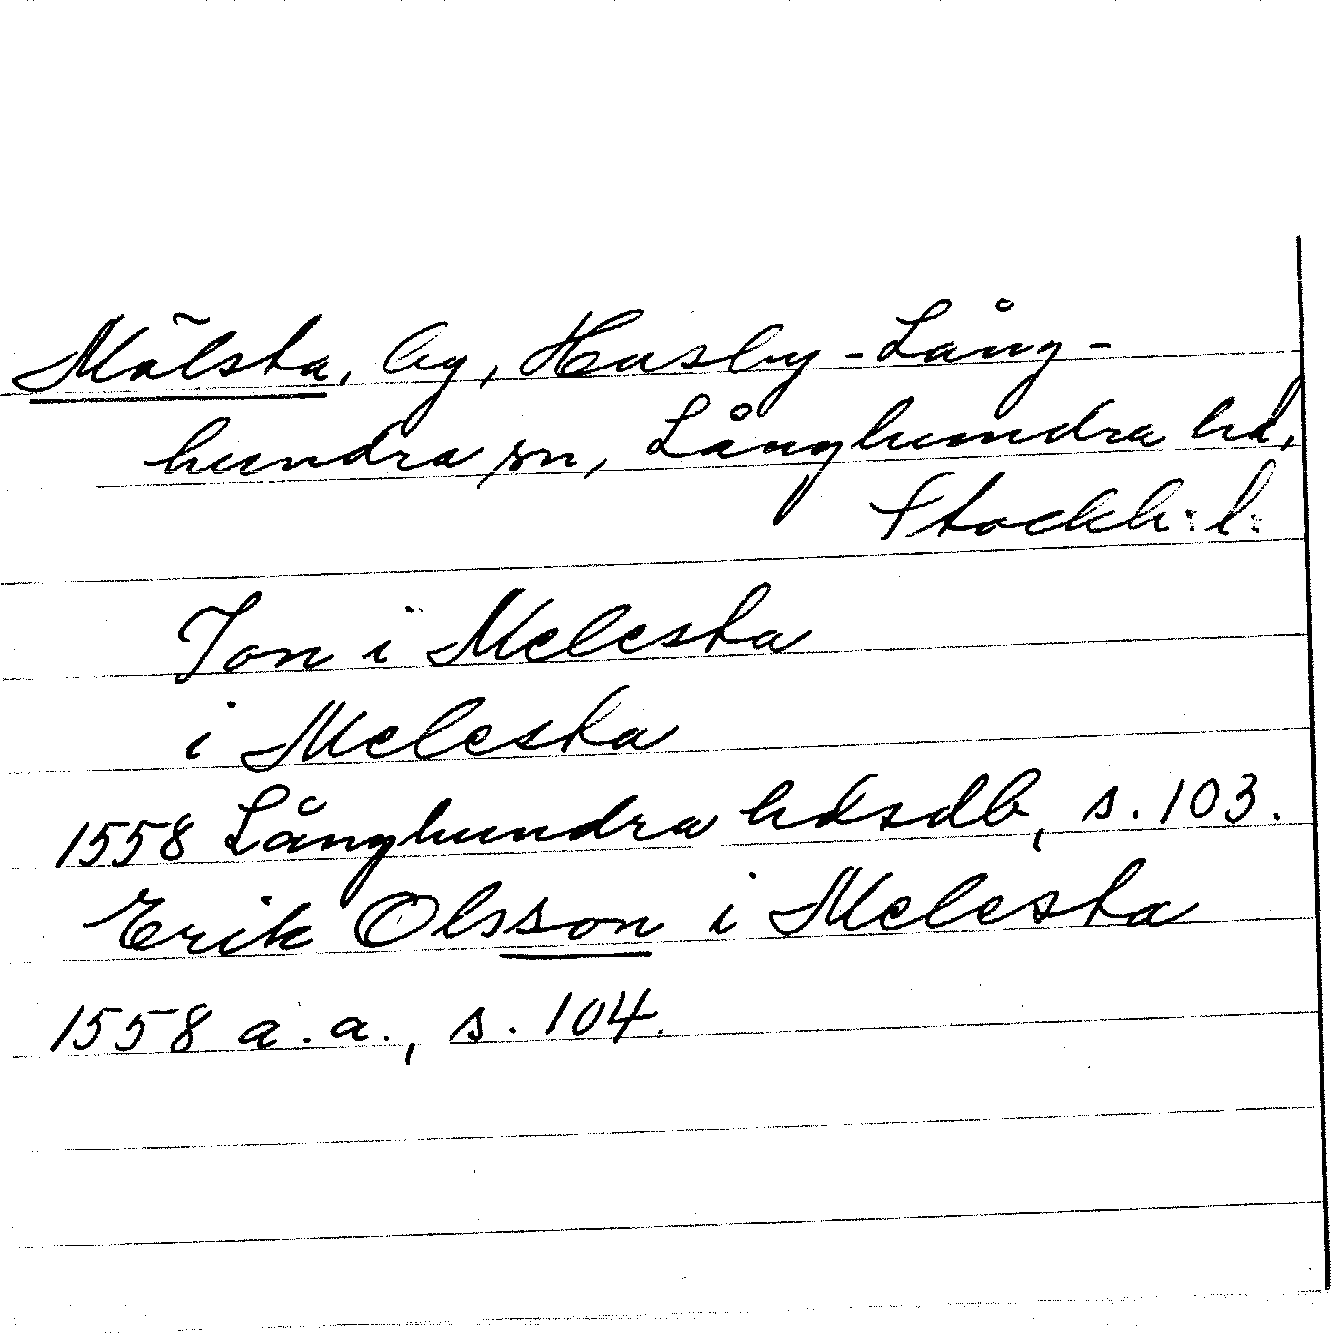 Mälsta, by, Husby-Lång-
hundra sn, Långhundra hd,
Stockh: l:
Jon i Melesta
i Melesta
1558 Långhundra hdsdb, s. 103.
Erik Olsson i Melesta
1558 a.a., s. 104.